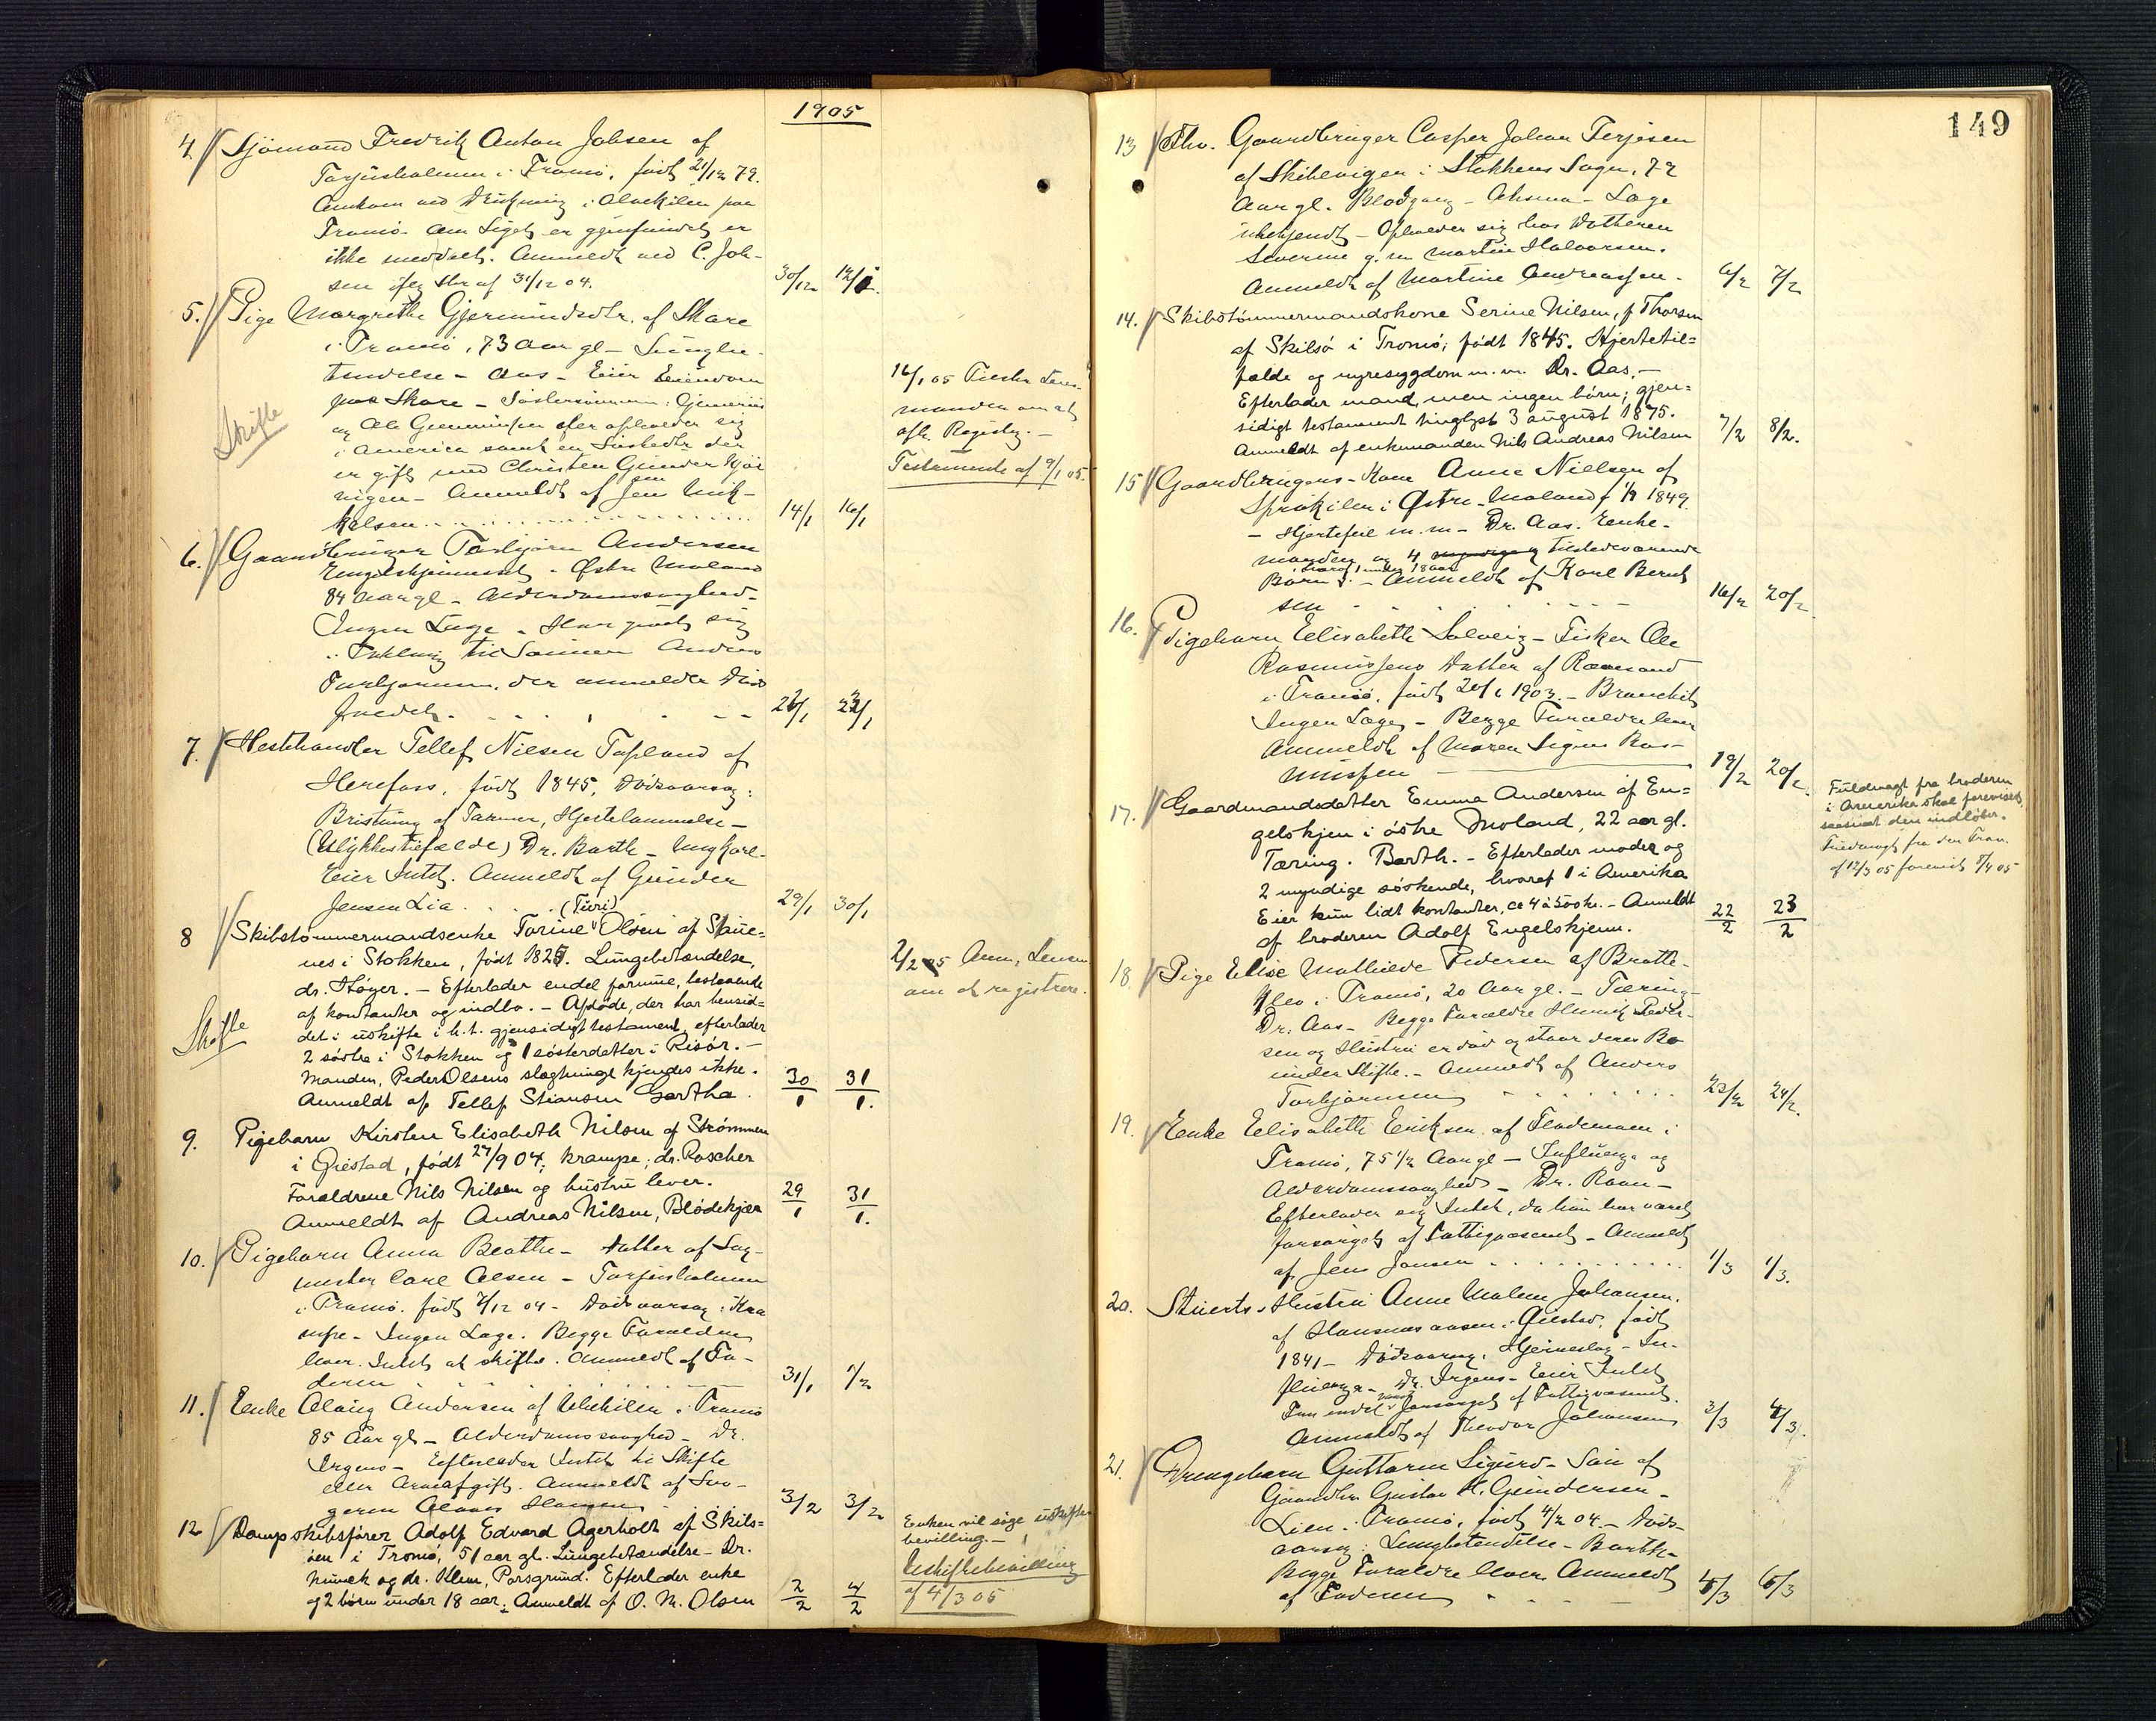 1905
4 Sjømand Fredrik Anton Jobsen af
Torjusholmen i Tromø, født 21/12 79.
Omkom ved Drukning i Alvekilen paa
Tromø. Om Liget er gjenfundet er
ikke meddelt. Anmeldt ved C. Job-
sen iflg Skr af 31/12 04. 30/12 12/1.
5. Pige Margrethe Gjermundsdtr. af Skare
i Tromø, 73 Aar gl – Lungebe-
tendelse – Aas – Eier Eiendom
paa Skare – Søstersønnerne: Gjeruriis
og Ole Gunnufsen der opholder sig
i America samt en Søsterdtr der
er gift med Christen Gunder Kjør
vigen – Anmeldt af Jens Mik-
kelsen 14/1 16/1
Skifte
16/1 05 Tilskr Lens-
manden om at
afh. Registr. –
Testamente af 9/1 05.
6. Gaardbruger Torbjørn Andersen
Engelskjønnet i Østre Moland
84 Aar gl – Alderdomssvaghed –
Ingen Læge – Har givet sig
i Inkling til Sønnen Anders
Torbjørnsen, der anmelder Døds
faldet. 21/1 23/1
7. Hestehandler Tellef Nilsen Topland af
Herefoss, født 1845, Dødsaarsag:
Bristning af Tarmen, Hjertelammelse –
(Ulykkestilfælde) Dr. Barth – Ungkarl –
Eier Intet. Anmeldt af Gunder
Jensen Lia . . . . 29/1 30/1
(Turi)
8 Skibstømmermandsenke Torine Olsen af Staue-
nes i Stokken, født 1825. Lungebetændelse,
dr. Høyer. – Efterlader endel formue, bestaaende
af kontanter og indbo. – Afdøde, der har hensid-
det i uskifte i h.t. gjensidigt testament, efterlader
2 søstre i Stokken og 1 søsterdatter i Risør. –
Manden, Peder Olsens slægtninge kjendes ikke.
Anmeldt af Tellef Stiansen Gartha. 30/1 31/1.
Skifte
2/2 05 Anm. Lensm
om at registrere.
9. Pigebarn Kirsten Elisabeth Nilsen af Strømmen
i Øiestad, født 27/9 04; krampe; dr. Roscher
Forældrene Nils Nilsen og hustru lever.
Anmeldt af Andreas Nilsen, Blødekjær 29/1 31/1.
10. Pigebarn Anna Beathe – datter af Sag-
mester Carl Olsen – Torjusholmen
i Tromø. født 4/12 04 – Dødsaarsag: Kra
mpe – Ingen Læge. Begge Forældre
lever. Intet at skifte. Anmeldt af Fa-
deren 31/1 1/2
11. Enke Olaug Andersen af Ulekilen i Tromø
85 Aar gl – Alderdomssvaghed – Dr.
Irgens – Efterlader Intet til Skifte
eller Arveafgift. Anmeldt af Svo-
geren Olaus Hansen 3/2 3/2
12 Dampskibsfører Adolf Edvard Agerholt af Skils-
øen i Tromø, 51 aar gl. Lungebetændelse – Dr.
Munck og dr. Ulen, Porsgrund. Efterlader enke
og 2 børn under 18 aar; Anmeldt af O. M. Olsen 2/2 4/2
Enken vil søge uskifte
bevilling. –
Uskiftebevilling
af 4/3 05
149
13 Fhv. Gaardbruger Casper Johan Terjesen
af Skibevigen i Stokkens Sogn, 72
Aar gl. Blodgang – Læge
ubekjendt – Opholder sig hos Datteren
Severine g. m. Martin Halvorsen.
Anmeldt af Martine Andreassen. 6/2 7/2
14. Skibstømmermandskone Serine Nilsen, f Thorsen
af Skilsø i Tromø; født 1845. Hjertetil-
fælde og nyresygdom m.m. Dr. Aas. –
Efterlader mand, men ingen børn; gjen-
sidigt testament tinglyst 3 august 1875.
Anmeldt af enkemanden Nils Andreas Nilsen 7/2 8/2.
15 Gaardbrugers-Kone Anne Nielsen af
Sprøkilen i Østre-Moland f 1/9 1849.
– Hjertefeil m.m – Dr. Aas. Enke-
manden og 4 myndige og tilstedeværende
hvoraf 1 under 18 aar
Børn. – Anmeldt af Karl Bernt
sen 16/2 20/2
16. Pigebarn Elisabeth Solveig – Fisker Ole
Rasmussens Datter af Revesand
i Tromø, født 20/1 1903. – Bronchit
Ingen Læge – Begge Forældre lever
Anmeldt af Maren Signe Ras-
mussen 19/2 20/2.
17. Gaardmandsdatter Emma Andersen af En-
gelskjen i østre Moland, 22 aar gl.
Tæring. Barth. – Efterlader moder og
2 myndige søskende, hvoraf 1 i Amerika
Eier kun lidt kontanter, ca 4 à 500 kr. – Anmeldt
af broderen Adolf Engelskjønn. 22/2 23/2
Fuldmagt fra broderen
i Amerika skal forevises,
saasnart den indløber.
Fuldmagt fra den Frav.
af 12/3 05 forevist 7/4 05
18. Pige Elise Mathilde Pedersen af Bratte-
klev i Tromø, 20 Aar gl. – Tæring –
Dr. Aas – Begge Forældre Henrik Peder-
sen og Hustru er død og staar deres Bo
under Skifte. – Anmeldt af Anders
Torbjørnsen 23/2 24/2.
19. Enke Elisabeth Eriksen af Flademoen i
Tromø, 75 1/2 Aar gl – Influenza og
Alderdomssvaghed – Dr. Raan –
Efterlader sig Intet, da hun har været
forsørget af Fattigvæsenet – Anmeldt
af Jens Jensen 1/3 1/3.
20. Stuerts-Hustru Anne Malene Johansen,
af Hansnæsaasen i Øiestad, født
1841 – Dødsaarsag: Hjerneslag – In-
fluenza – Dr. Irgens – Eier Intet
været
Fun endel forsørget af Fattigvæsenet.
Anmeldt af Theodor Johansen 3/3 4/3.
21. Drengebarn Guttorm Sigurd – Søn af
Gaardbr Gustav H. Gundersen –
Lien i Tromø, født 4/2 04 – Døds-
aarsag: Lungbetændelse – Barth –
Begge Forældre lever. Anmeldt
af Faderen 4/3 6/3